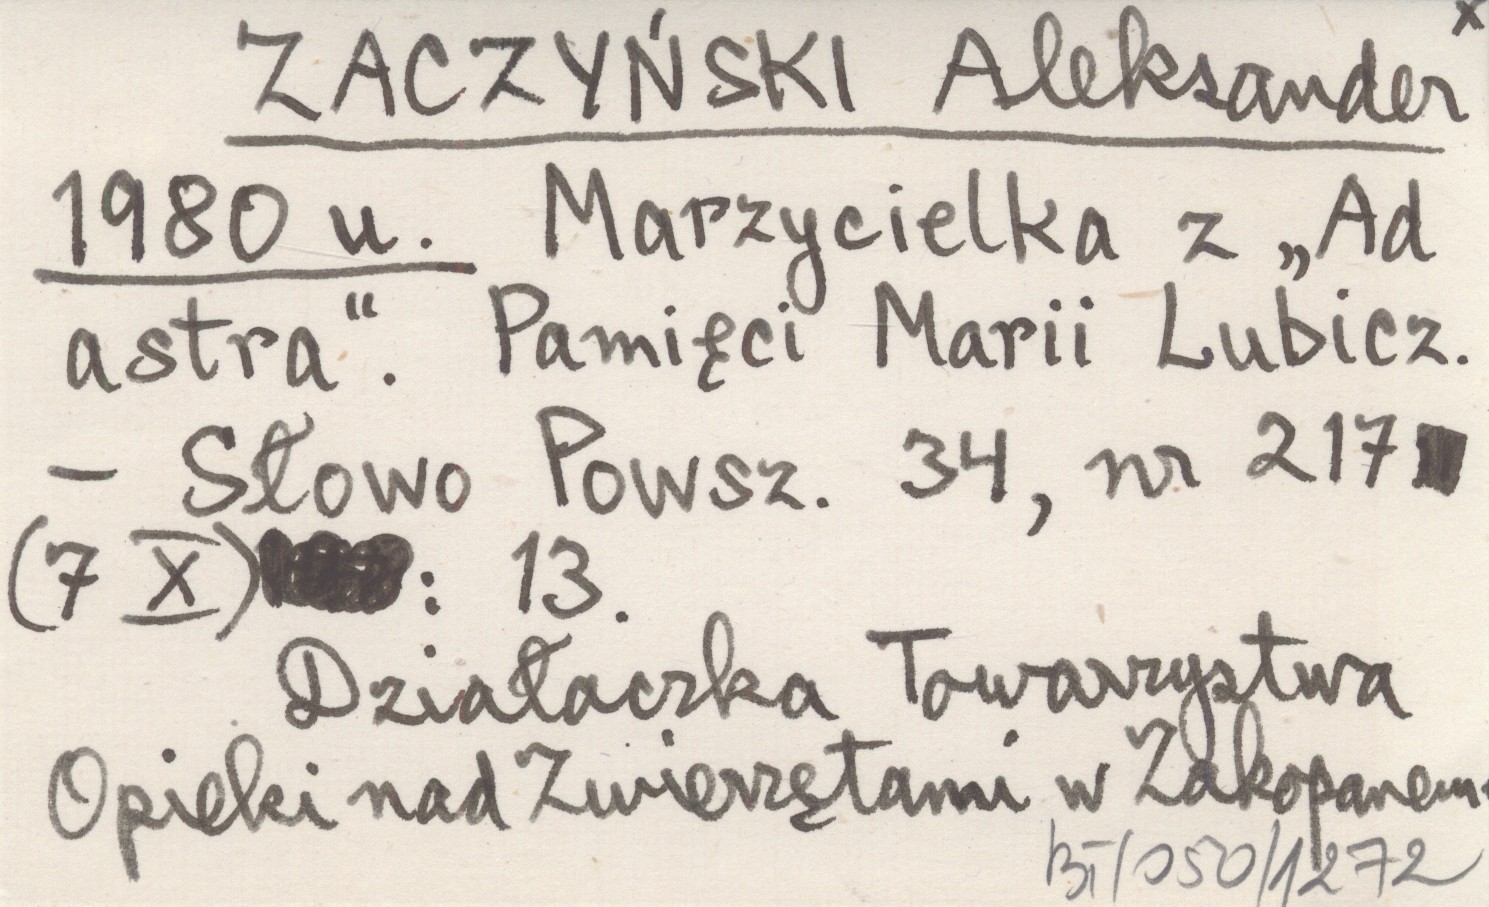 x
ZACZYŃSKI Aleksander
1980 u. Marzycielka z „Ad
astra“. Pamięci Marii Lubicz.
– Słowo Powsz. 34, nr 217
(7 X) : 13.
Działaczka Towarzystwa
Opieki nad Zwierzętami w Zakopanem.
BT/050/1272